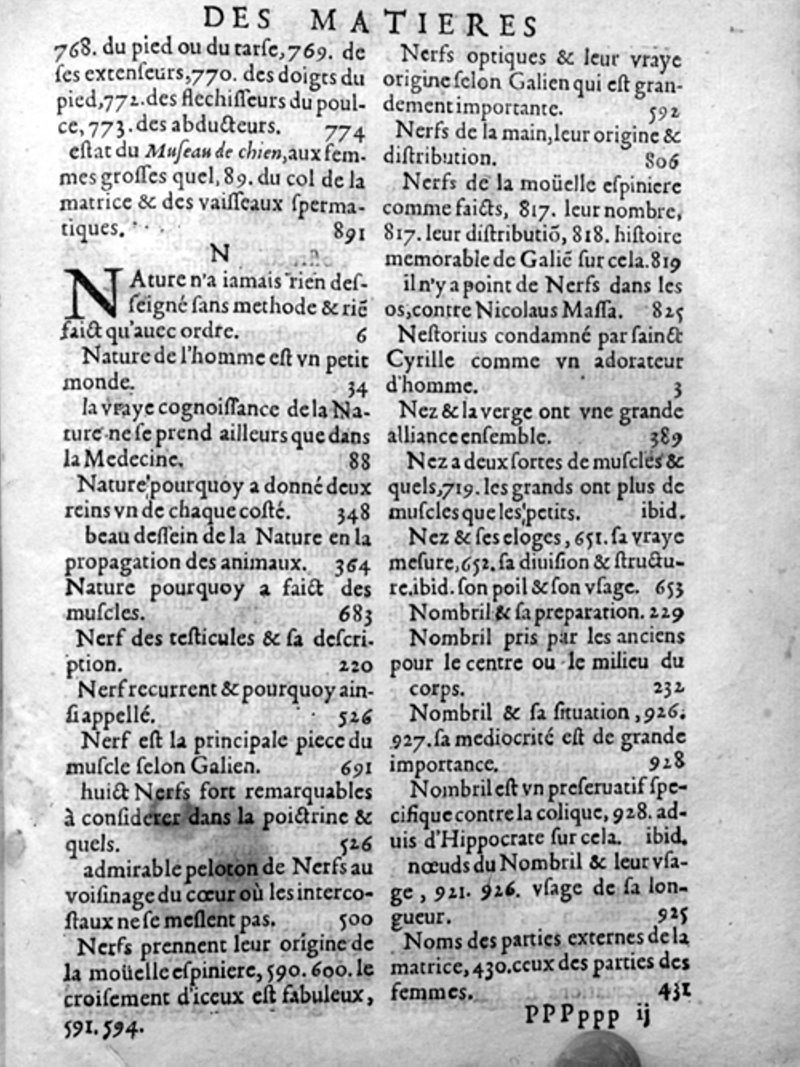 DES MATIERES
768. du pied ou du tarſe, 769. de
ſes extenſeurs, 770. des doigts du
pied, 772. des flechiſſeurs du poul-
ce, 773. des abducteurs. 774
eſtat du Muſeau de chien, aux fem-
mes groſſes quel, 89. du col de la
matrice & des vaiſſeaux ſperma-
tiques. 891
N
NAture n'a iamais rien deſ-
ſeigné ſans methode & riẽ
faict qu'auec ordre. 6
Nature de l'homme eſt vn petit
monde. 34
la vraye cognoiſſance de la Na-
ture ne ſe prend ailleurs que dans
la Medecine. 88
Nature pourquoy a donné deux
reins vn de chaque coſté. 348
beau deſſein de la Nature en la
propagation des animaux. 364
Nature pourquoy a faict des
muſcles. 683
Nerf des teſticules & ſa deſcri-
ption. 220
Nerf recurrent & pourquoy ain-
ſi appellé. 526
Nerf eſt la principale piece du
muſcle ſelon Galien. 691
huict Nerfs fort remarquables
à conſiderer dans la poictrine &
quels. 526
admirable peloton de Nerfs au
voiſinage du cœur où les interco-
ſtaux ne ſe meſlent pas. 500
Nerfs prennent leur origine de
la moüelle eſpiniere, 590. 600. le
croiſement d'iceux eſt fabuleux,
591. 594.
Nerfs optiques & leur vraye
origine ſelon Galien qui eſt gran-
dement importante. 592
Nerfs de la main, leur origine &
diſtribution. 806
Nerfs de la moüelle eſpiniere
comme faicts, 817. leur nombre,
817. leur diſtributiõ, 818. hiſtoire
memorable de Galiẽ ſur cela. 819
il n'y a point de Nerfs dans les
os, contre Nicolaus Maſſa. 825
Neſtorius condamné par ſainct
Cyrille comme vn adorateur
d'homme. 3
Nez & la verge ont vne grande
alliance enſemble. 389
Nez a deux ſortes de muſcles &
quels, 719. les grands ont plus de
muſcles que les petits. ibid.
Nez & ſes eloges, 651. ſa vraye
meſure, 652. ſa diuiſion & ſtructu-
re. ibid. ſon poil & ſon vſage. 653
Nombril & ſa preparation. 229
Nombril pris par les anciens
pour le centre ou le milieu du
corps. 232
Nombril & ſa ſituation, 926.
927. ſa mediocrité eſt de grande
importance. 928
Nombril eſt vn preſeruatif ſpe-
cifique contre la colique, 928. ad-
uis d'Hippocrate ſur cela. ibid.
nœuds du Nombril & leur vſa-
ge, 921. 926. vſage de ſa lon-
gueur. 925
Noms des parties externes de la
matrice, 430. ceux des parties des
femmes. 431
PPPppp ij